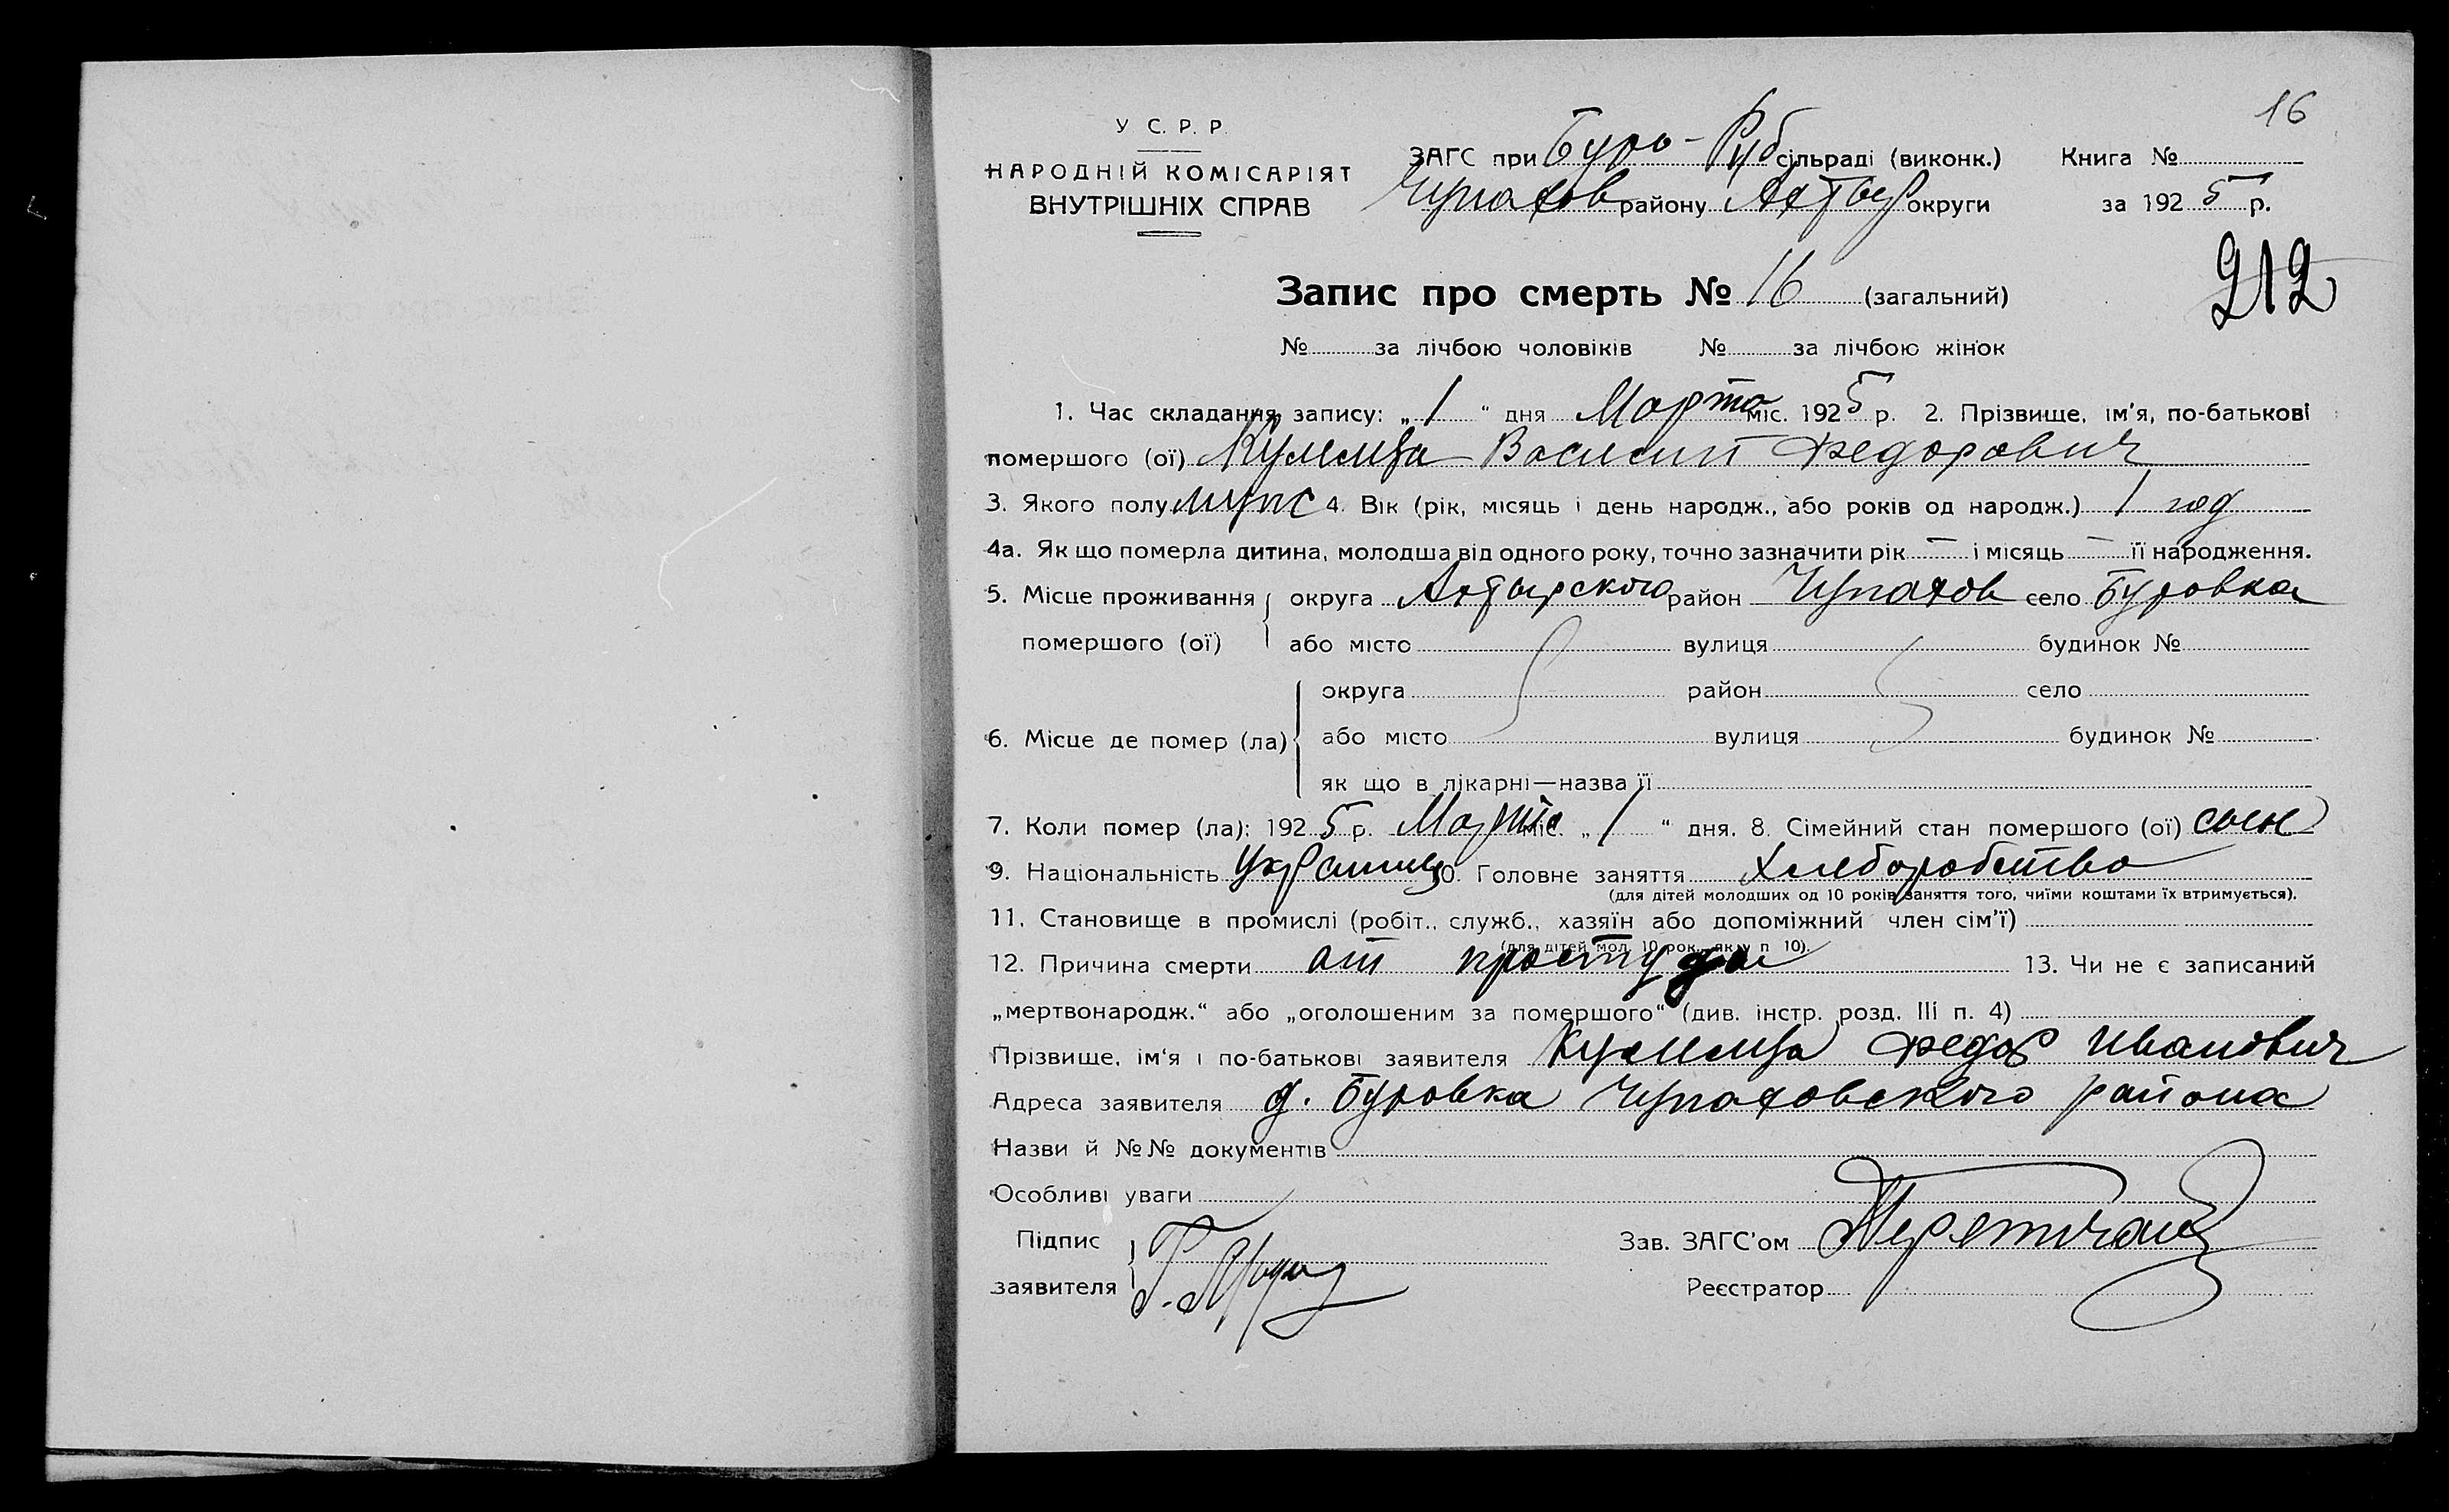 16
У С. Р. Р.
НАРОДНІЙ КОМІСАРІЯТ
ВНУТРІШНІХ СПРАВ
ЗАГС при Буро-Руб сільраді (виконк.) Книга №
Чупахов району Ахтыр округи за 1925 р.
212
Запис про смерть № 16 (загальний)
№ за лічбою чоловіків № за лічбою жінок
1. Час складання запису: „1“ дня Марта міс. 1925 р. 2. Прізвище, ім'я, по-батькові
помершого (ої) Василий Федорович
3. Якого полу муж 4. Вік (рік, місяць і день народж., або років од народж.) 1 год
4а. Як що померла дитина, молодша від одного року, точно зазначити рік — і місяць — її народження.
5. Місце проживання округа Ахтырского район Чупахов село Буровка
помершого (ої) або місто вулиця будинок №
округа район село
6. Місце де помер (ла) або місто вулиця будинок №
як що в лікарні—назва її
7. Коли помер (ла): 1925 р. Марта міс. „1“ дня. 8. Сімейний стан помершого (ої) сын
9. Національність Украинец 10. Головне заняття Хлеборобство
(для дітей молодших од 10 років заняття того, чиїми коштами їх втримується).
11. Становище в промислі (робіт., служб., хазяїн або допоміжний член сім'ї)
(для дітей мол. 10 рок., як у п 10).
12. Причина смерти от простуды 13. Чи не є записаний
„мертвонародж.“ або „оголошеним за помершого“ (див. інстр. розд. III п. 4)
Прізвище, ім'я і по-батькові заявителя Федор Иванович
Адреса заявителя д. Буровка Чупаховского района
Назви й №№ документів
Особливі уваги
Підпис
заявителя
Зав. ЗАГС'ом
Реєстратор